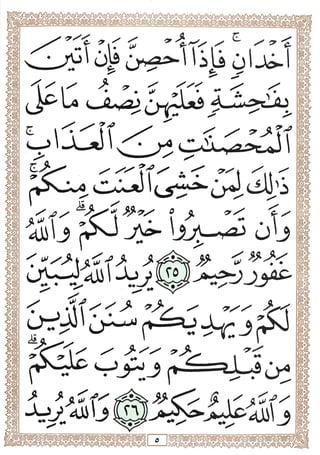 أَخۡدَانٖۚ فَإِذَآ أُحۡصِنَّ فَإِنۡ أَتَيۡنَ
بِفَٰحِشَةٖ فَعَلَيۡهِنَّ نِصۡفُ مَا عَلَى
ٱلۡمُحۡصَنَٰتِ مِنَ ٱلۡعَذَابِۚ
ذَٰلِكَ لِمَنۡ خَشِيَ ٱلۡعَنَتَ مِنكُمۡۚ
وَأَن تَصۡبِرُواْ خَيۡرٞ لَّكُمۡۗ وَٱللَّهُ
غَفُورٞ رَّحِيمٞ ٢٥ يُرِيدُ ٱللَّهُ لِيُبَيِّنَ
لَكُمۡ وَيَهۡدِيَكُمۡ سُنَنَ ٱلَّذِينَ
مِن قَبۡلِكُمۡ وَيَتُوبَ عَلَيۡكُمۡۗ
وَٱللَّهُ عَلِيمٌ حَكِيمٞ ٢٦ وَٱللَّهُ يُرِيدُ
٥